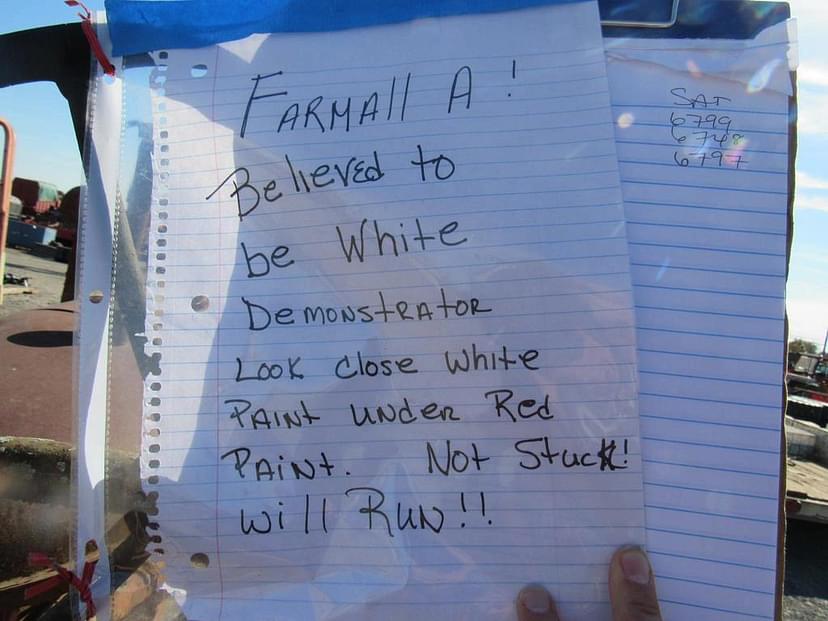 FARMAll A!
Believed to
be White
DEMONSTRATOR
LOOK close white
PAINT under Red
PAINT. Not Stuck!
Will RUN!!
SAT
6799
6748
6797